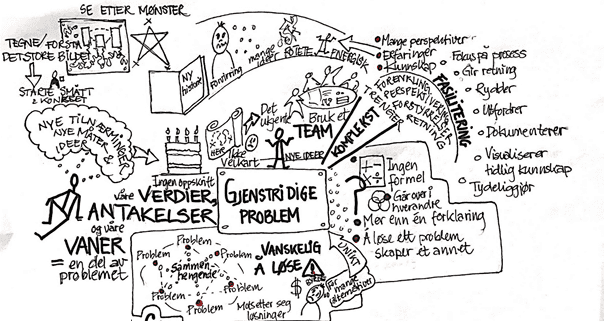 SE ETTER MØNSTER
TEGNE/FORSTÅ
DET STORE BILDET
START SMÅTT
& KONKRET
NYE TILNÆRMINGER
NYE MÅTER &
IDEER
NY
historie
Forvirring
mange
ideer
POTETE
ENERGISK
Mange perspektiver
Erfaringer
Kunnskap
Fokus på prosess
Gir retning
Rydder
Utfordrer
Dokumenterer
Visualiserer
tidlig kunnskap
Tydeliggjør
FASILITERING
FORENKLING
PERSPEKTIVERING
FORSTYRRELSER
TRENGER RETNING
KOMPLEKST
Bruk et
TEAM
NYE IDEER
Det
ukjente
HER
Ikke
veikart
Ingen oppskrift
Våre VERDIER,
ANTAKELSER
og våre
VANER
= en del av
problemet
GJENSTRIDIGE
PROBLEM
Ingen
formel
Går over i
hverandre
Mer enn én forklaring
Å løse ett problem
skaper et annet
VANSKELIG
Å LØSE
UNIKT
$
For mange
alternativer
Problem
Problem
Problem
Problem
Problem
Problem
Sammen-
hengende
Motsetter seg
løsninger